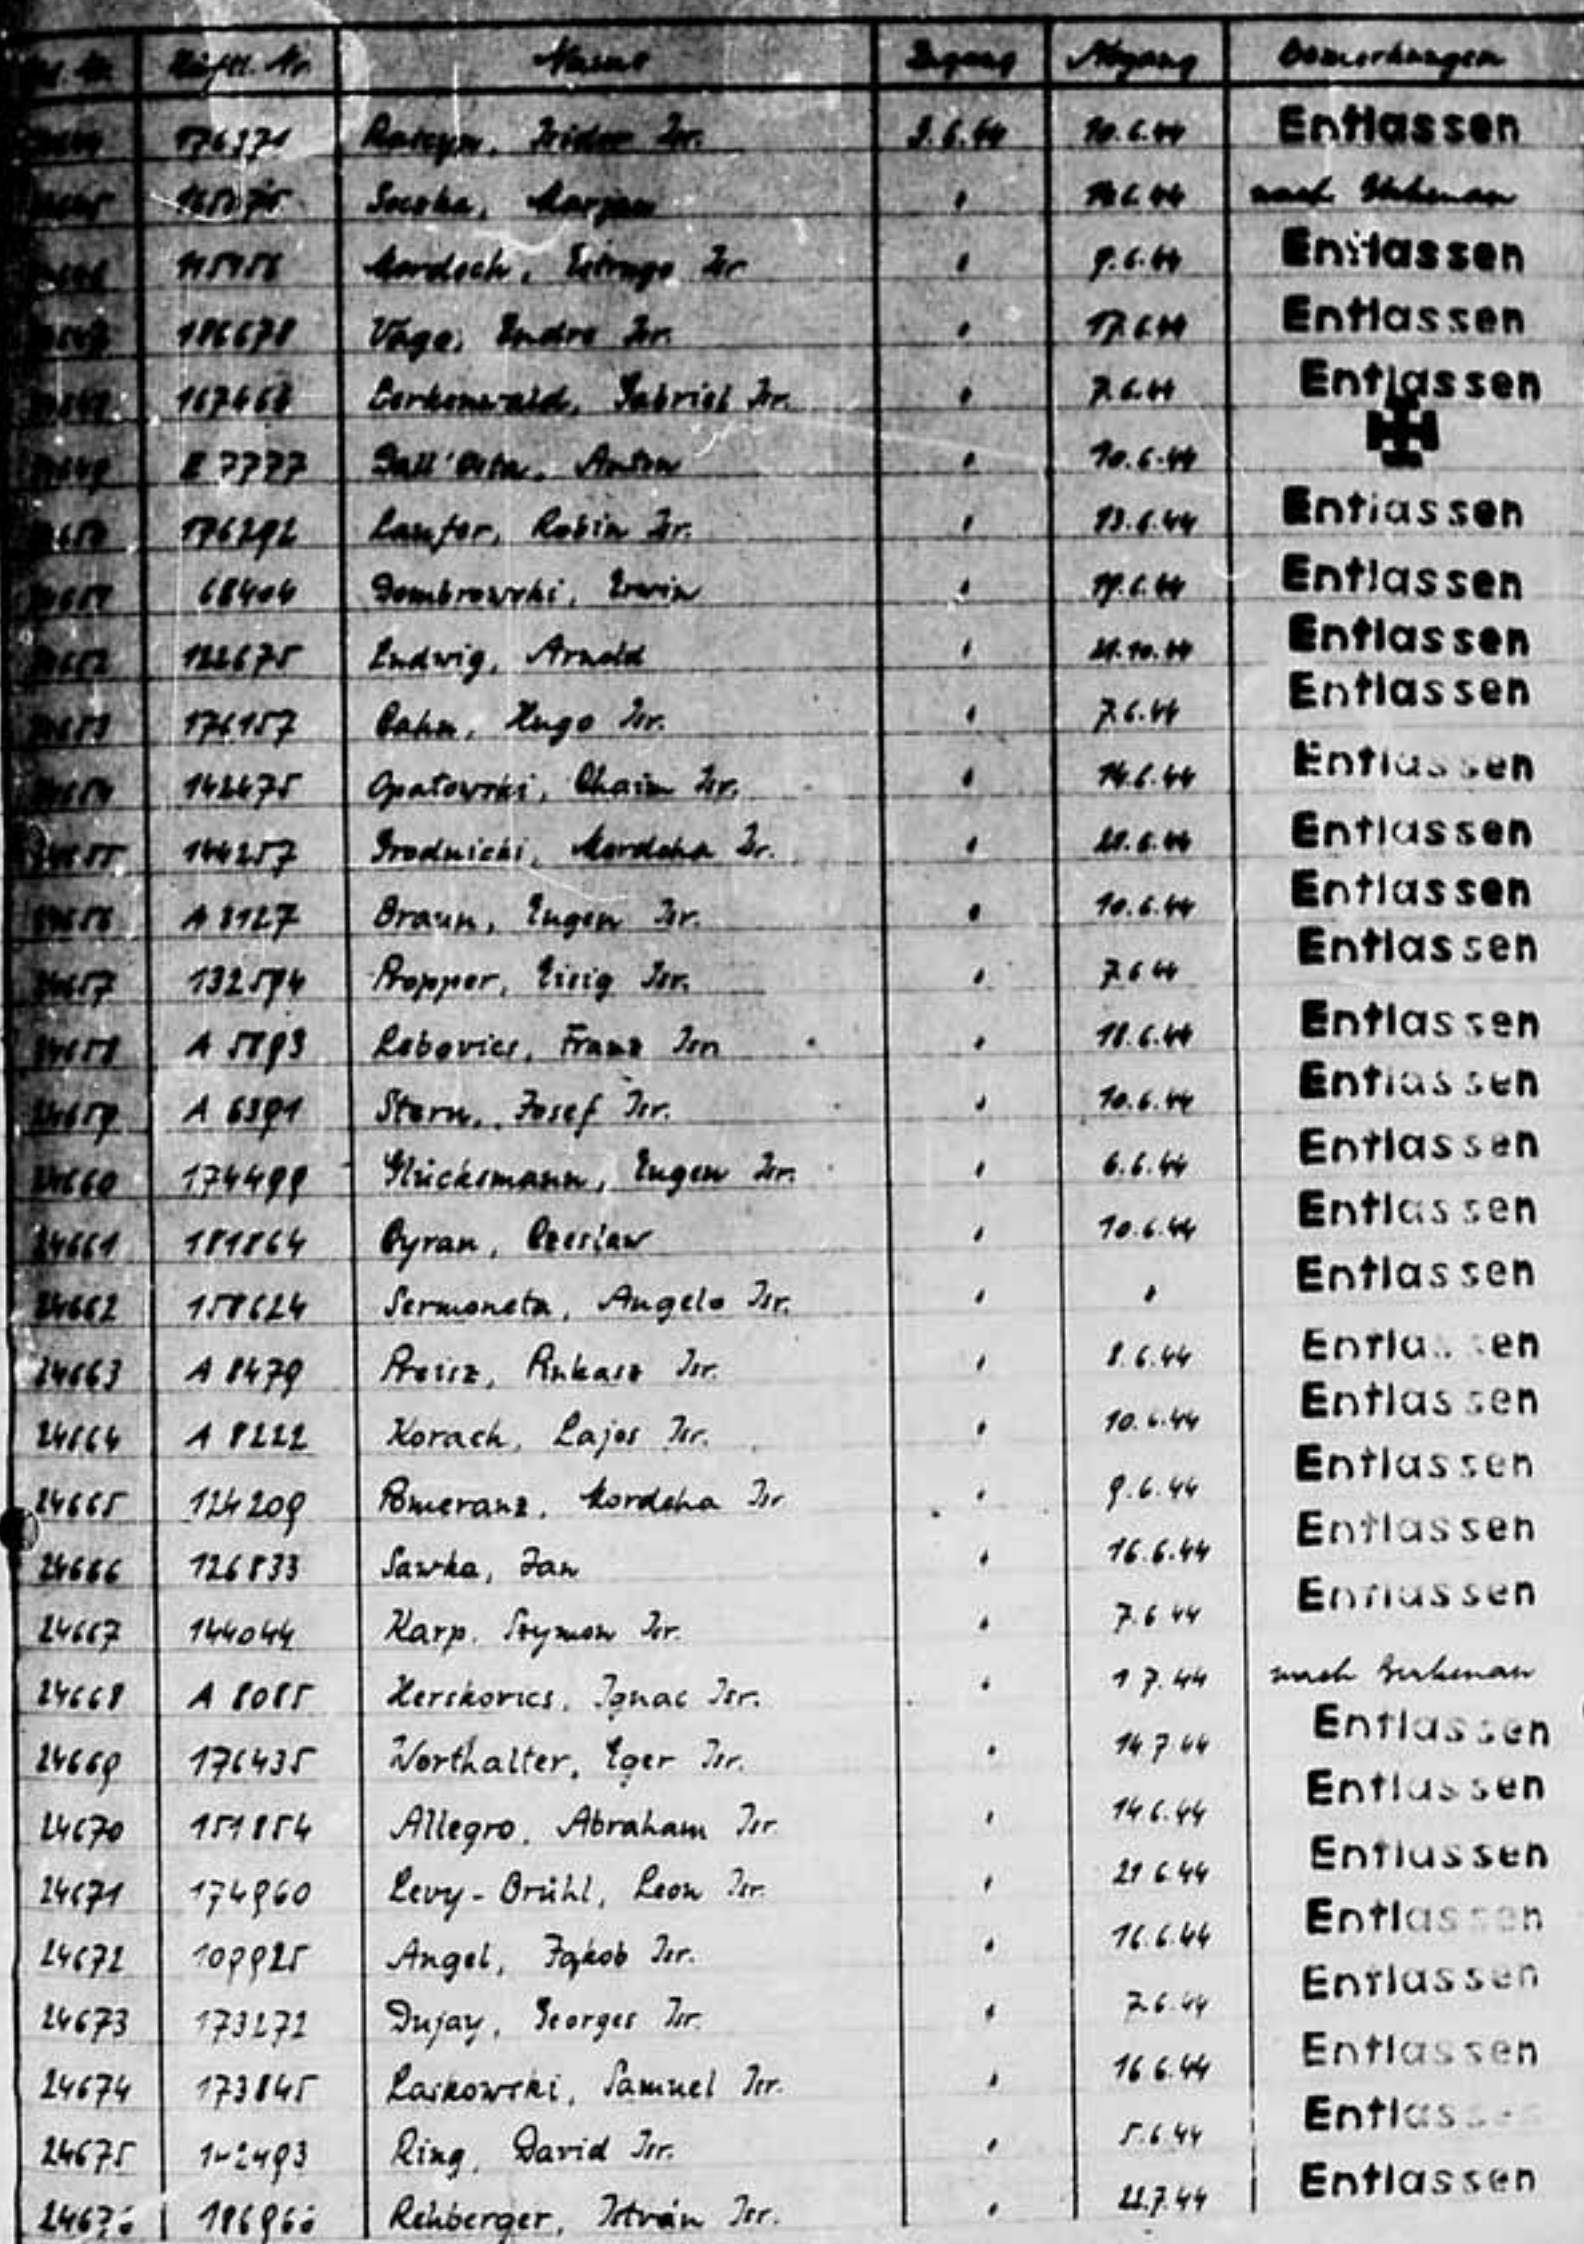 Häftl. Nr. Name Zugang Abgang Bemerkungen
176371 Isr. 3.6.44 10.6.44 Entlassen
Marjan " nach Birkenau
Mordoch, Isr. " 9.6.44 Entlassen
186678 Vago, Endre Isr. " 17.6.44 Entlassen
Gabriel Isr. " 7.6.44 Entlassen
Anton " 10.6.44
176292 Laufer, Robin Isr. " 13.6.44 Entlassen
68404 Dombrowski, Erwin " Entlassen
122675 Ludwig, Arnold " Entlassen
176157 Cahn, Hugo Isr. " 7.6.44 Entlassen
142475 Opatowski, Chaim Isr. " 14.6.44 Entlassen
144257 Grodnicki, Mordcha Isr. " Entlassen
24656 A 8127 Braun, Eugen Isr. " 10.6.44 Entlassen
24657 132594 Propper, Eisig Isr. " 7.6.44 Entlassen
24658 A 5893 Lebovics, Franz Isr. " 18.6.44 Entlassen
24659 A 6391 Stern, Josef Isr. " 10.6.44 Entlassen
24660 174499 Glücksmann, Eugen Isr. " 6.6.44 Entlassen
24661 181864 Cyran, Czeslaw " 10.6.44 Entlassen
24662 158624 Sermoneta, Angelo Isr. " " Entlassen
24663 A 8479 Preisz, Isr. " 8.6.44 Entlassen
24664 A 8222 Korach, Lajos Isr. " 10.6.44 Entlassen
24665 124209 Pomeranz, Mordcha Isr. " 9.6.44 Entlassen
24666 126833 Sawka, Jan " 16.6.44 Entlassen
24667 144044 Karp, Szymon Isr. " 7.6.44 Entlassen
24668 A 8085 Herskovics, Ignac Isr. " 1.7.44 nach Birkenau
24669 176435 Worthalter, Eger Isr. " 14.7.44 Entlassen
24670 151854 Allegro, Abraham Isr. " 14.6.44 Entlassen
24671 174960 Levy-Brühl, Leon Isr. " 21.6.44 Entlassen
24672 109925 Angel, Jakob Isr. " 16.6.44 Entlassen
24673 173272 Dujay, Georges Isr. " 7.6.44 Entlassen
24674 173845 Laskowski, Samuel Isr. " 16.6.44 Entlassen
24675 Ring, David Isr. " 5.6.44 Entlassen
24676 Rehberger, István Isr. " 22.7.44 Entlassen